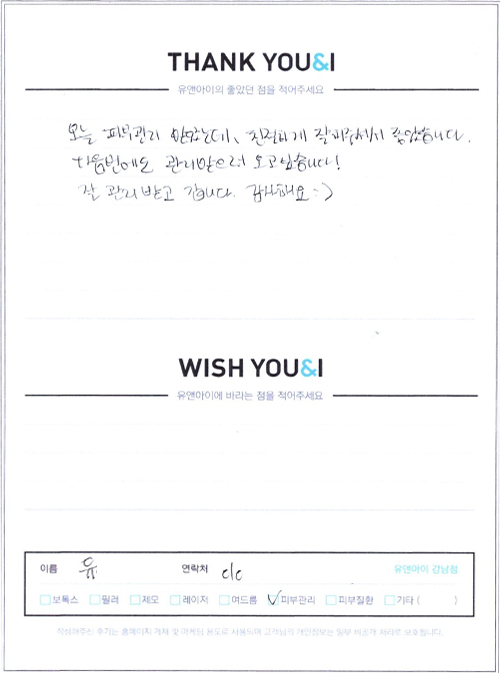 THANK YOU&I
유앤아이의 좋았던 점을 적어주세요
오늘 피부관리 받았는데, 친절하게 잘해주셔서 좋았습니다.
다음번에도 관리받으러 오고싶습니다!
잘 관리 받고 갑니다. 감사해요 :)
WISH YOU&I
유앤아이에 바라는 점을 적어주세요
이름 유 연락처 유앤아이 강남점
보톡스 필러 제모 레이저 여드름 피부관리 피부질환 기타 ( )
작성해주신 후기는 홈페이지 게재 및 마케팅 용도로 사용되며 고객님의 개인정보는 일부 비공개 처리로 보호됩니다.